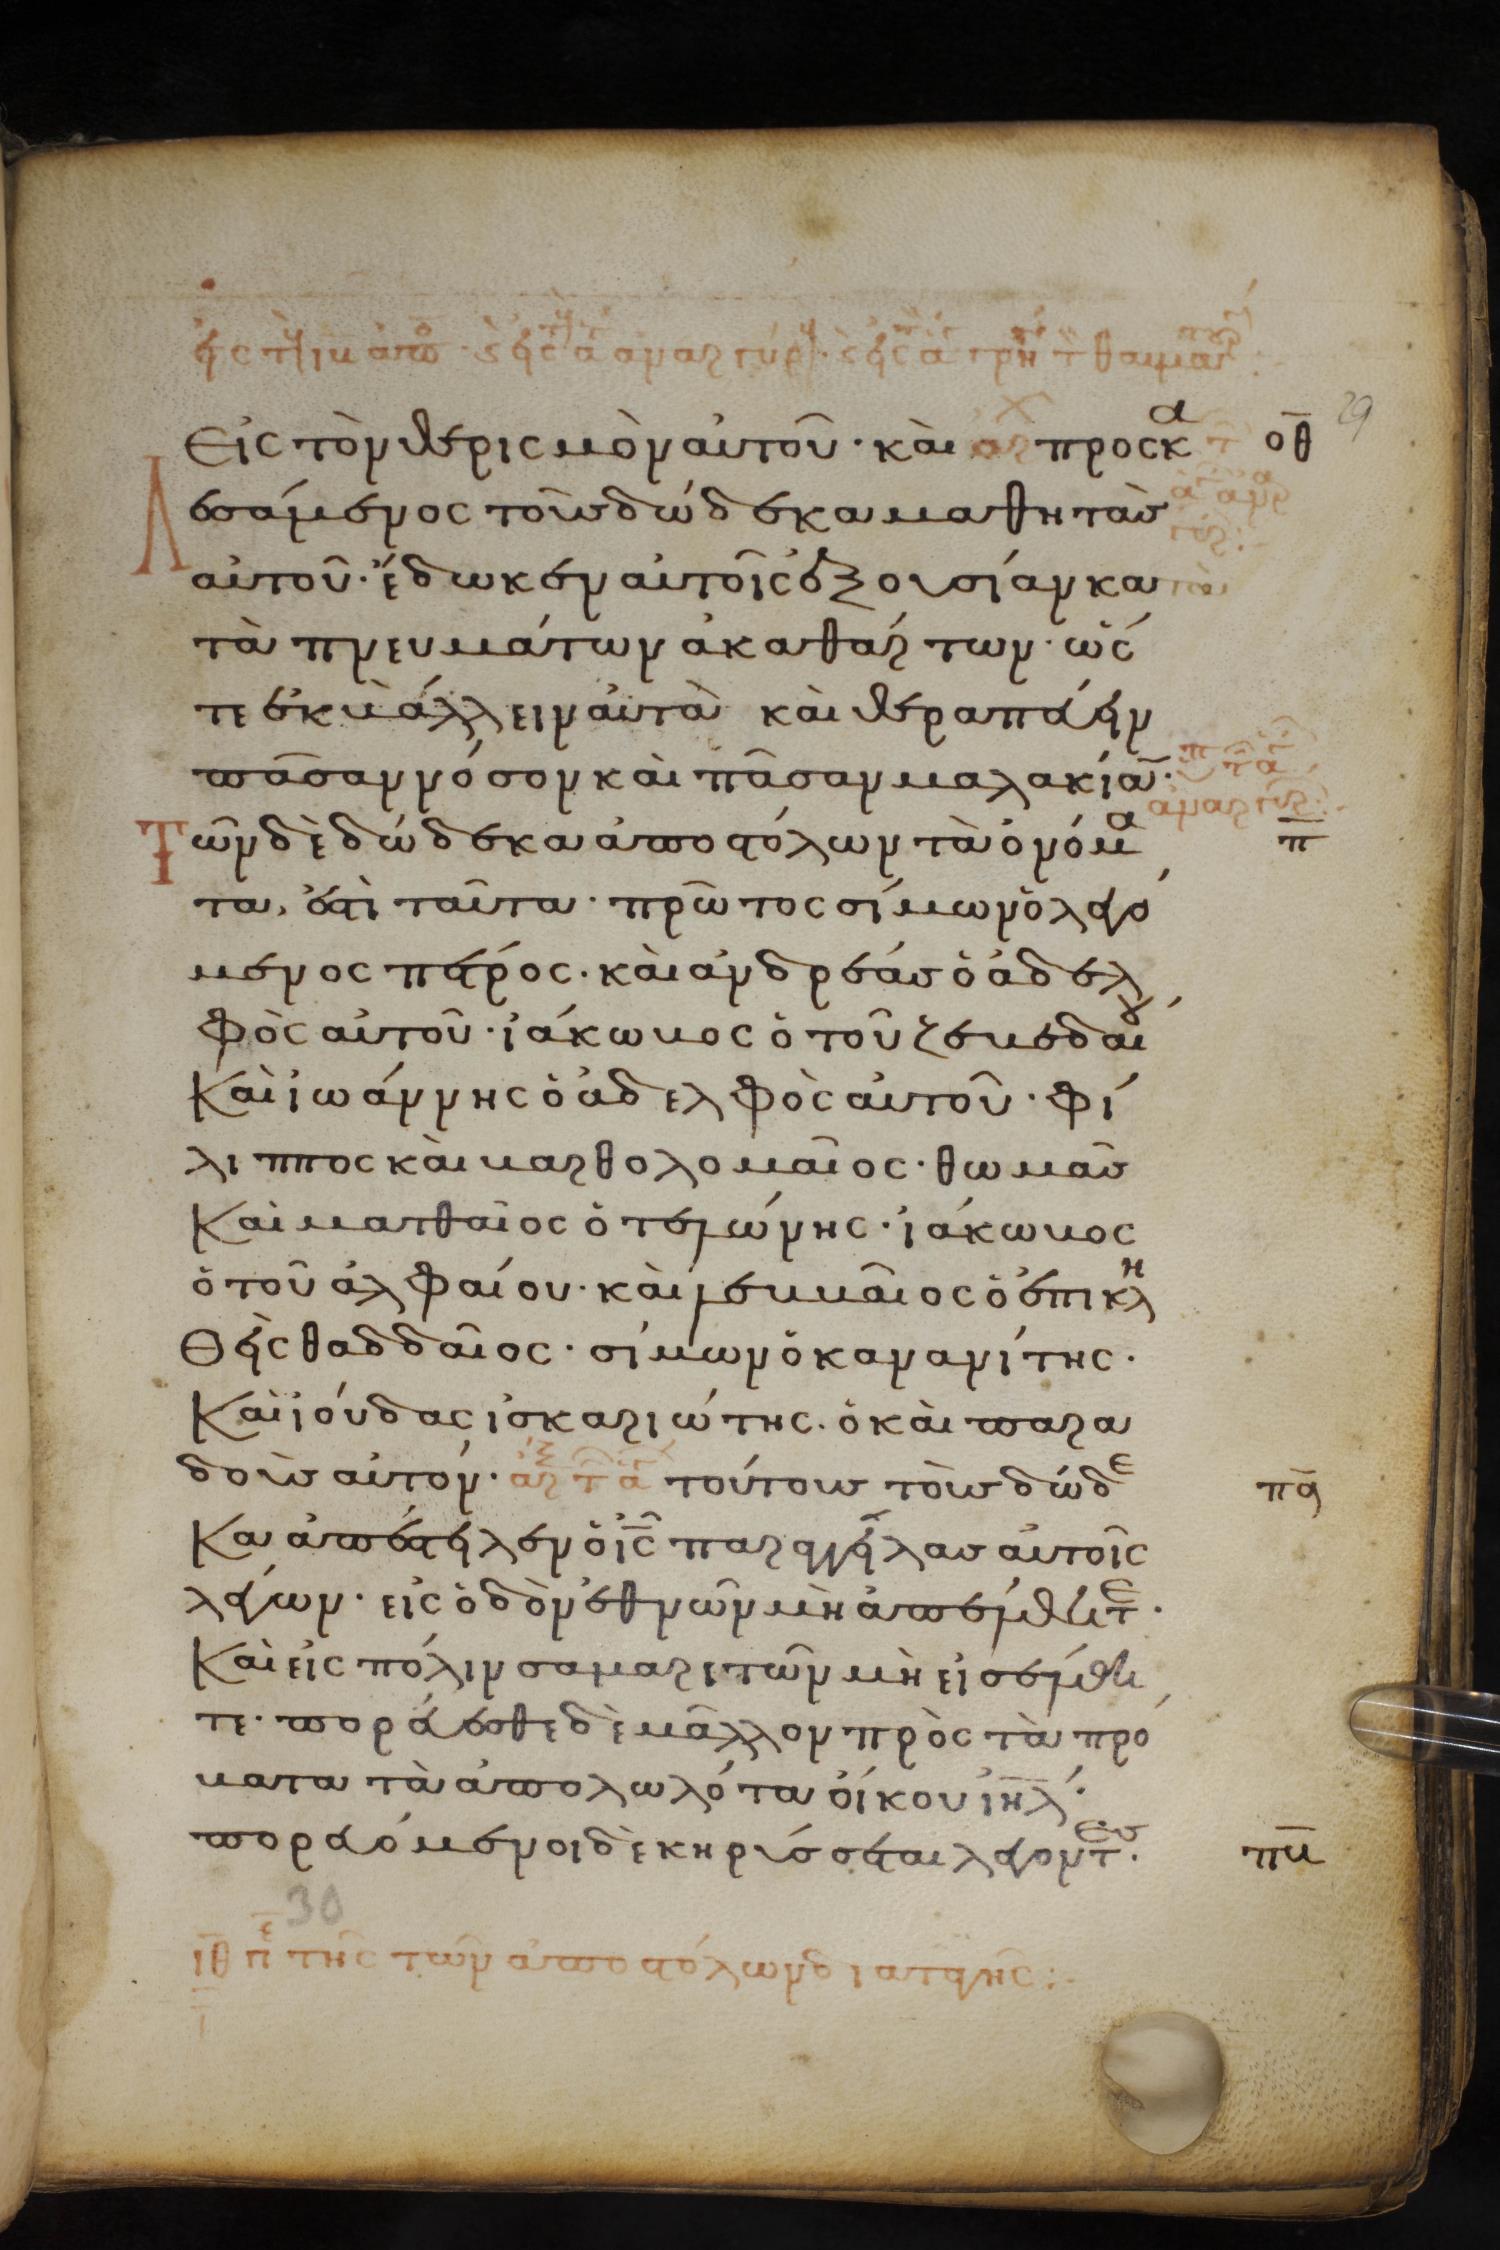 Εἰς τὸν θερισμὸν αὐτοῦ · καὶ προσκα οθ
λεσάμενος τοὺς δώδεκα μαθητὰς
αὐτοῦ · ἔδωκεν αὐτοῖς ἐξουσίαν κα
τὰ πνευμάτων ἀκαθάρτων · ὥσ
τε ἐκβάλλειν αὐτὰ καὶ θεραπεύειν
πᾶσαν νόσον καὶ πᾶσαν μαλακίαν ·
Τῶν δὲ δώδεκα ἀποστόλων τὰ ὀνόμα π
τα, ἐστὶ ταῦτα · πρῶτος σίμων ὁ λεγό
μενος πέτρος · καὶ ἀνδρέας ὁ ἀδελ
φὸς αὐτοῦ · ἰάκωβος ὁ τοῦ ζεβεδαίου
Καὶ ἰωάννης ὁ ἀδελφὸς αὐτοῦ · φί
λιππος καὶ βαρθολομαῖος · θωμᾶς
Καὶ ματθαῖος ὁ τελώνης · ἰάκωβος
ὁ τοῦ ἀλφαίου · καὶ λεββαῖος ὁ ἐπικλη
Θεὶς θαδδαῖος · σίμων ὁ κανανίτης ·
Καὶ ἰούδας ἰσκαριώτης · ὁ καὶ παρα
δοὺς αὐτόν · τούτους τοὺς δώδε πα
Κα ἀπέστειλεν ὁ ις παραγγείλας αὐτοῖς
λέγων · εἰς ὁδὸν ἐθνῶν μὴ ἀπέλθητε ·
Καὶ εἰς πόλιν σαμαρειτῶν μὴ εἰσέλθη
τε · πορεύεσθε δὲ μᾶλλον πρὸς τὰ πρό
βατα τὰ ἀπολωλότα οἴκου ιηλ ·
πορευόμενοι δὲ κηρύσσετε λέγοντες · πβ
30
ιθ π τῆς τῶν ἀποστόλων διαταγῆς :